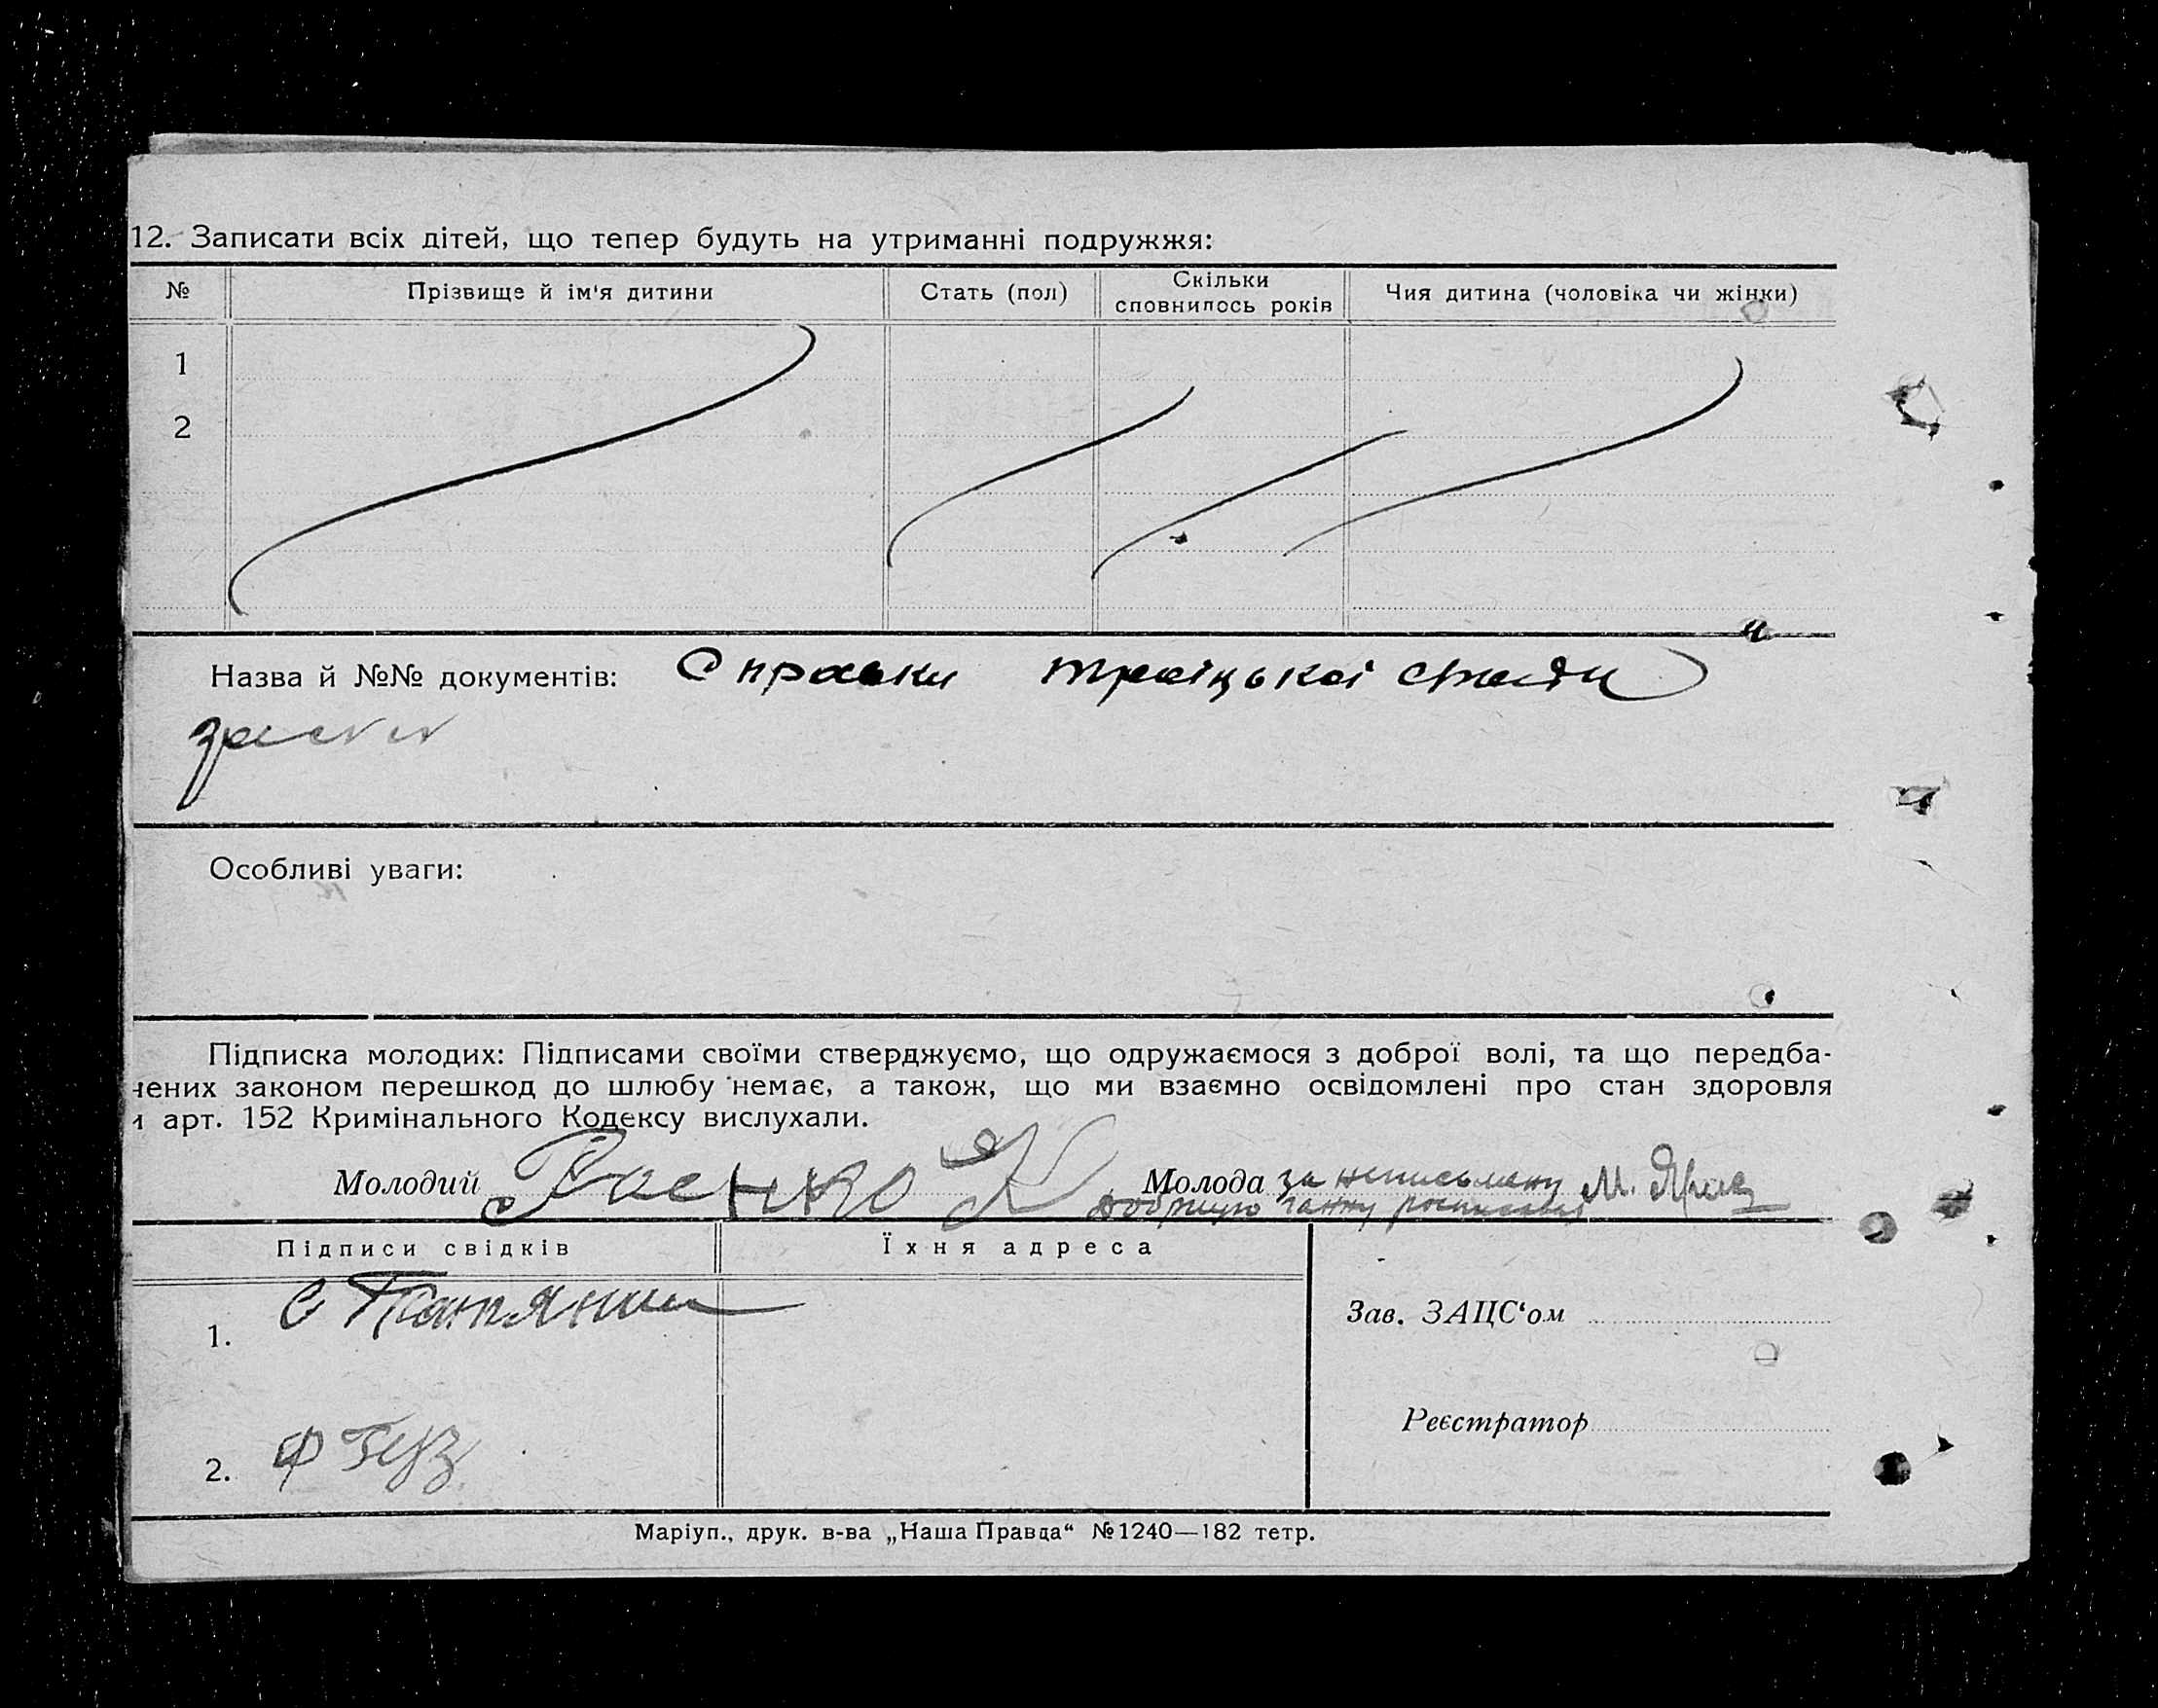 12. Записати всіх дітей, що тепер будуть на утриманні подружжя:
№ Прізвище й ім'я дитини Стать (пол) Скільки сповнилось років Чия дитина (чоловіка чи жінки)
1
2
Назва й №№ документів: Справки троїцької
Особливі уваги:
Підписка молодих: Підписами своїми стверджуємо, що одружаємося з доброї волі, та що передба-
чених законом перешкод до шлюбу немає, а також, що ми взаємно освідомлені про стан здоровля
й арт. 152 Кримінального Кодексу вислухали.
Молодий Молода за неписьмену М.
ганну
Підписи свідків Їхня адреса
1. С
Зав. ЗАЦС‘ом
Реєстратор
2. Ф Гуз
Маріуп., друк. в-ва „Наша Правда“ №1240—182 тетр.